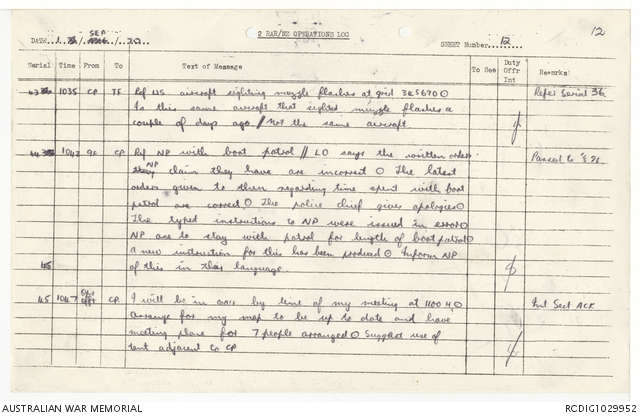 12
2 RAR/NZ OPERATIONS LOG
DATE 1 SEP 70
SHEET Number 12
Serial Time From To Text of Message To See Duty Offr Int Remarks
43 1035 CP TF Ref US aircraft sighting muzzle flashes at grid 385670 Refer Serial 36
Is this same aircraft that sighted muzzle flashes a
couple of days ago // Not the same aircraft
44 1042 CP Ref NP with boat patrol // LO says the written orders Passed to
NP claim they have are incorrect The latest
orders given to them regarding time spent with boat
patrol are correct The police chief gives apologies
The typed instructions to NP were issued in error
NP are to stay with patrol for length of boat patrol
a new instruction for this has been produced Inform NP
45 of this in their language.
45 1047 Ops Offr CP I will be in by time of my meeting at 1100 Int Sect ACK
arrange for my map to be up to date and have
meeting place for 7 people arranged Suggest use of
tent adjacent to CP
AUSTRALIAN WAR MEMORIAL
RCDIG1029952